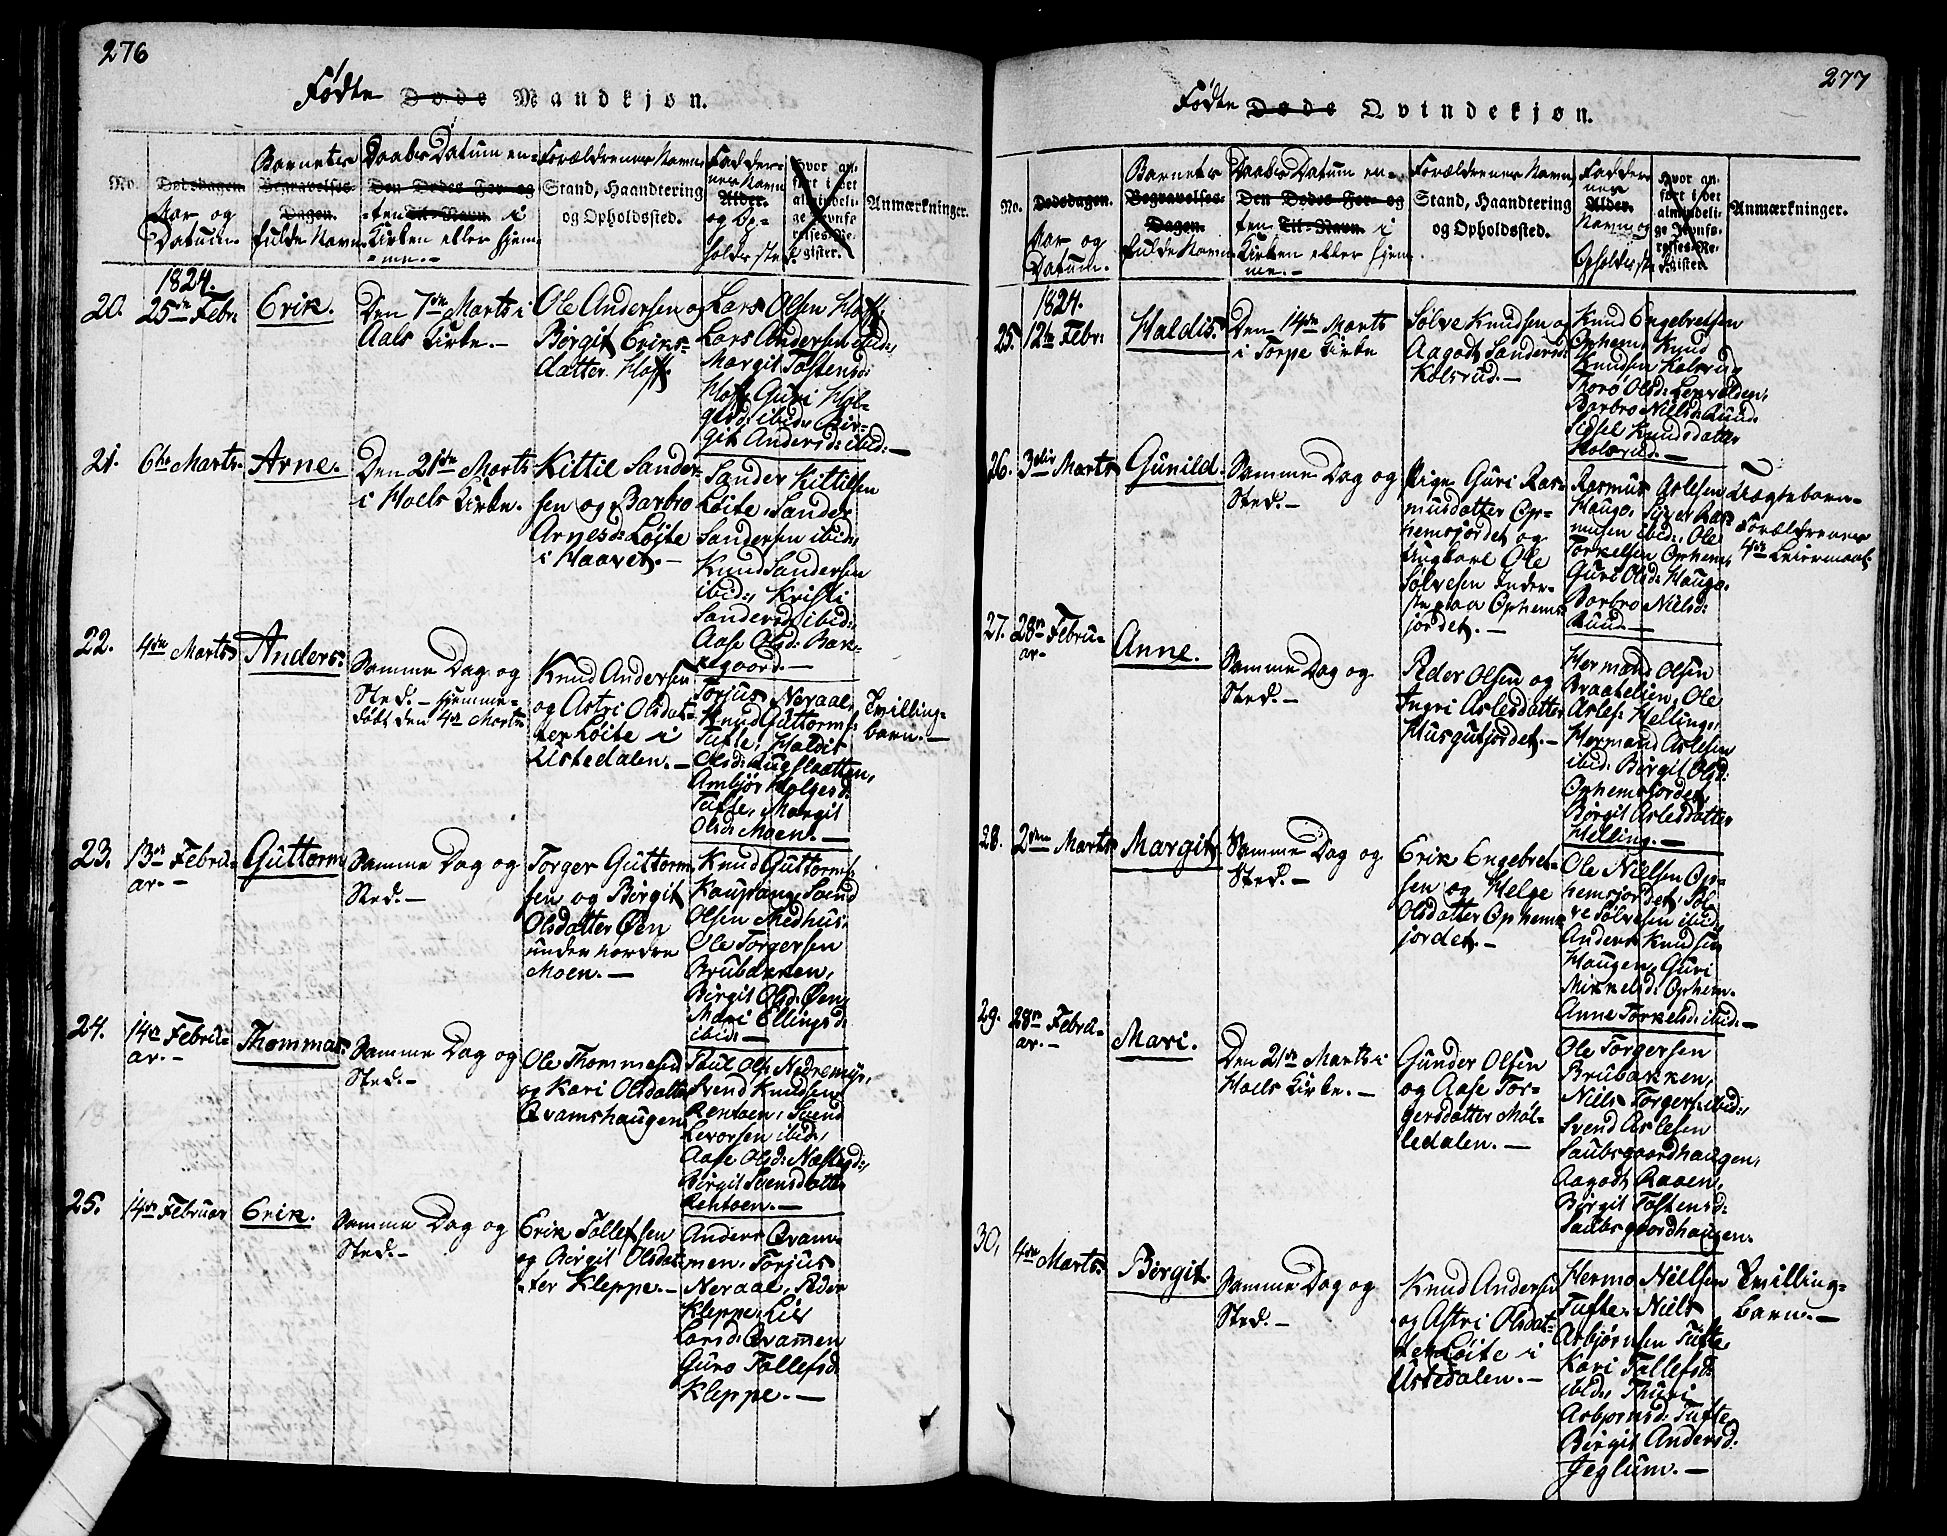 276
Fødte Døde Mandkjøn.
No.
Dødsdagen.
Aar og
Datum.
Barnets
Begravelses-
Dagen.
fulde Navn
Daabs Datum en-
Den Dødes For- og
-ten Til-Navn i
Kirken eller hjem-
me.-
Forældrenes Navn
Stand, Haandtering
og Opholdssted.
Fadder-
nes Navn
Alder.
og Op-
holdssted.
Hvor an-
ført i det
almindeli-
ge Jevnfø-
relses-Re-
gister.
Anmærkninger.
1824.
20. 25de Febr:
Erik.
Den 7de Marts i
Aals Kirke.-
Ole Andersen og
Birgit Eriks-
datter Hoff.
Lars Olsen Hoff,
Lars Andersen ibid:,
Margit Tostensd:
Hoff, Guri Hol-
gesd: ibid:, Bir-
git Andersd: ibid:-
21. 6te Marts.
Arne.
Den 21de Marts
i Hols Kirke.
Kittil Sander-
sen og Barbro
Arnesd: Løite
i Haavet.-
Sander Kittilsen
Løite, Sander
Sandersen ibid:,
Knud Sandersen
ibid:, Kristi
Sandersd: ibid:,
Aase Olsd: Bak-
kegaard.-
22. 4de Marts
Anders:
Samme Dag og
Sted.- Hjemme-
døbt den 4de Marts
Knud Andersen
og Astri Olsdat-
ter Løite i
Ustedalen.-
Torjus Neraal,
Knud Guttorms:
Tufte, Haldis
Olsd:
Ambjør Holgesd:
Tufte, Margit
Olsd: Moen.-
Tvilling-
barn.-
23. 13de Febru-
ar.-
Guttorm
Samme Dag og
Sted.-
Torger Guttorm-
sen og Birgit
Olsdatter Øen
under nordre
Moen.-
Knud Guttorms:
Kaupang, Svend
Olsen Medhus,
Ole Torgersen
Brubakken,
Birgit Olsd: Øen,
Mari Ellingsd:
ibid:-
24. 14de Febru-
ar.-
Thommas.
Samme Dag og
Sted.-
Ole Thommesen
og Kari Olsdatter
Qvamshaugen
Paul Ols: Nedremyr,
Svend Knudsen
Rentoen, Svend
Levorsen ibid:,
Aase Olsd: Næstegd:,
Birgit Svensdatter
Rentoen.-
25. 14de Februar
Erik.
Samme Dag og
Sted.-
Erik Tollefsen
og Birgit Olsdat-
ter Kleppe.-
Anders Qvam-
men, Torjus
Neraal, Peder
Kleppe, Liv
Larsd: Qvammen
Guro Tollefsd:
Kleppe.-
277
Fødte Døde Qvindekjøn.
No.
Dødsdagen.
Aar og
Datum.
Barnets
Begravelses-
Dagen.
fulde Navn
Daabs Datum en-
Den Dødes For- og
ten Til-Navn i
Kirken eller hjem-
me.-
Forældrenes Navn,
Stand, Haandtering
og Opholdssted.
Fadder-
nes
Alder.
Navn og
Opholdsste
Hvor an-
ført i det
almindeli-
ge Jevnfø-
relses-Re-
gister.
Anmærkninger.
1824.
25. 12te Febr:
Haldis.
Den 14de Marts
i Torpe Kirke
Sølve Knudsen og
Aagodt Sandersd:
Kolsrud.-
Knud Engebretsen
Ophem, Knud
Knudsen Kolsrud,
Thoro Olsd:
Barbro Nielsd: Ruud,
Sidsel Knudsdatter
Kolsrud.-
26. 3die Marts
Gunild.
Samme Dag og
Sted.-
Pige Guri Ras-
musdatter Op-
hemsjordet og
Ungkarl Ole
Sølvesen Inder-
ste paa Ophems-
jordet.-
Rasmus Aslesen
Haugo, Siver Ras-
musen ibid:, Ole
Torkelsen Ophem,
Guri Olsd: Haugo,
Barbro Nielsd:
Ruud.-
Uægte barn-
Forældrenes
4de Leiermaal
27. 28de Febru-
ar.-
Anne.
Samme Dag og
Sted.-
Peder Olsen og
Ingri Aslesdatter
Husgutjordet.-
Hermand Olsen
Braatelien, Ole
Asles: Helling,
Hermand Aslesen
ibid: Birgit Olsd:
Ophemsjordet,
Birgit Aslesdatter
Helling.-
28. 2den Marts
Margit
Samme Dag og
Sted.-
Erik Engebret-
sen og Helge
Olsdatter Ophems-
jordet.-
Ole Nielsen Op-
hemsjordet, Søl-
ve Sølvesen ibid:,
Anders Knudsen
Haugen, Guri
Mikkelsd: Ophem.
Anne Torkelsd: ibid:-
29. 28de Febru-
ar.-
Mari.
Den 21de Marts i
Hols Kirke.-
Gunder Olsen
og Aase Tor-
gersdatter Møl-
ledalen.-
Ole Torgersen
Brubakken,
Niels Torgers: ibid:,
Svend Aslesen
Saubsgaardhaugen,
Aagodt Raaen,
Birgit Tostensd:
Saubsgaardhaugen.
30. 4de Marts.
Birgit.
Samme Dag og
Sted.-
Knud Andersen
og Astri Olsdat-
ter Løite i
Ustedalen.-
Hermo Nielsen
Tufte, Niels
Asbjørnsen Tufte,
Kari Tollefsd:
ibid:, Thuri
Asbjørnsd: Tufte,
Birgit Andersd:
Jeglum.-
Tvilling-
barn.-